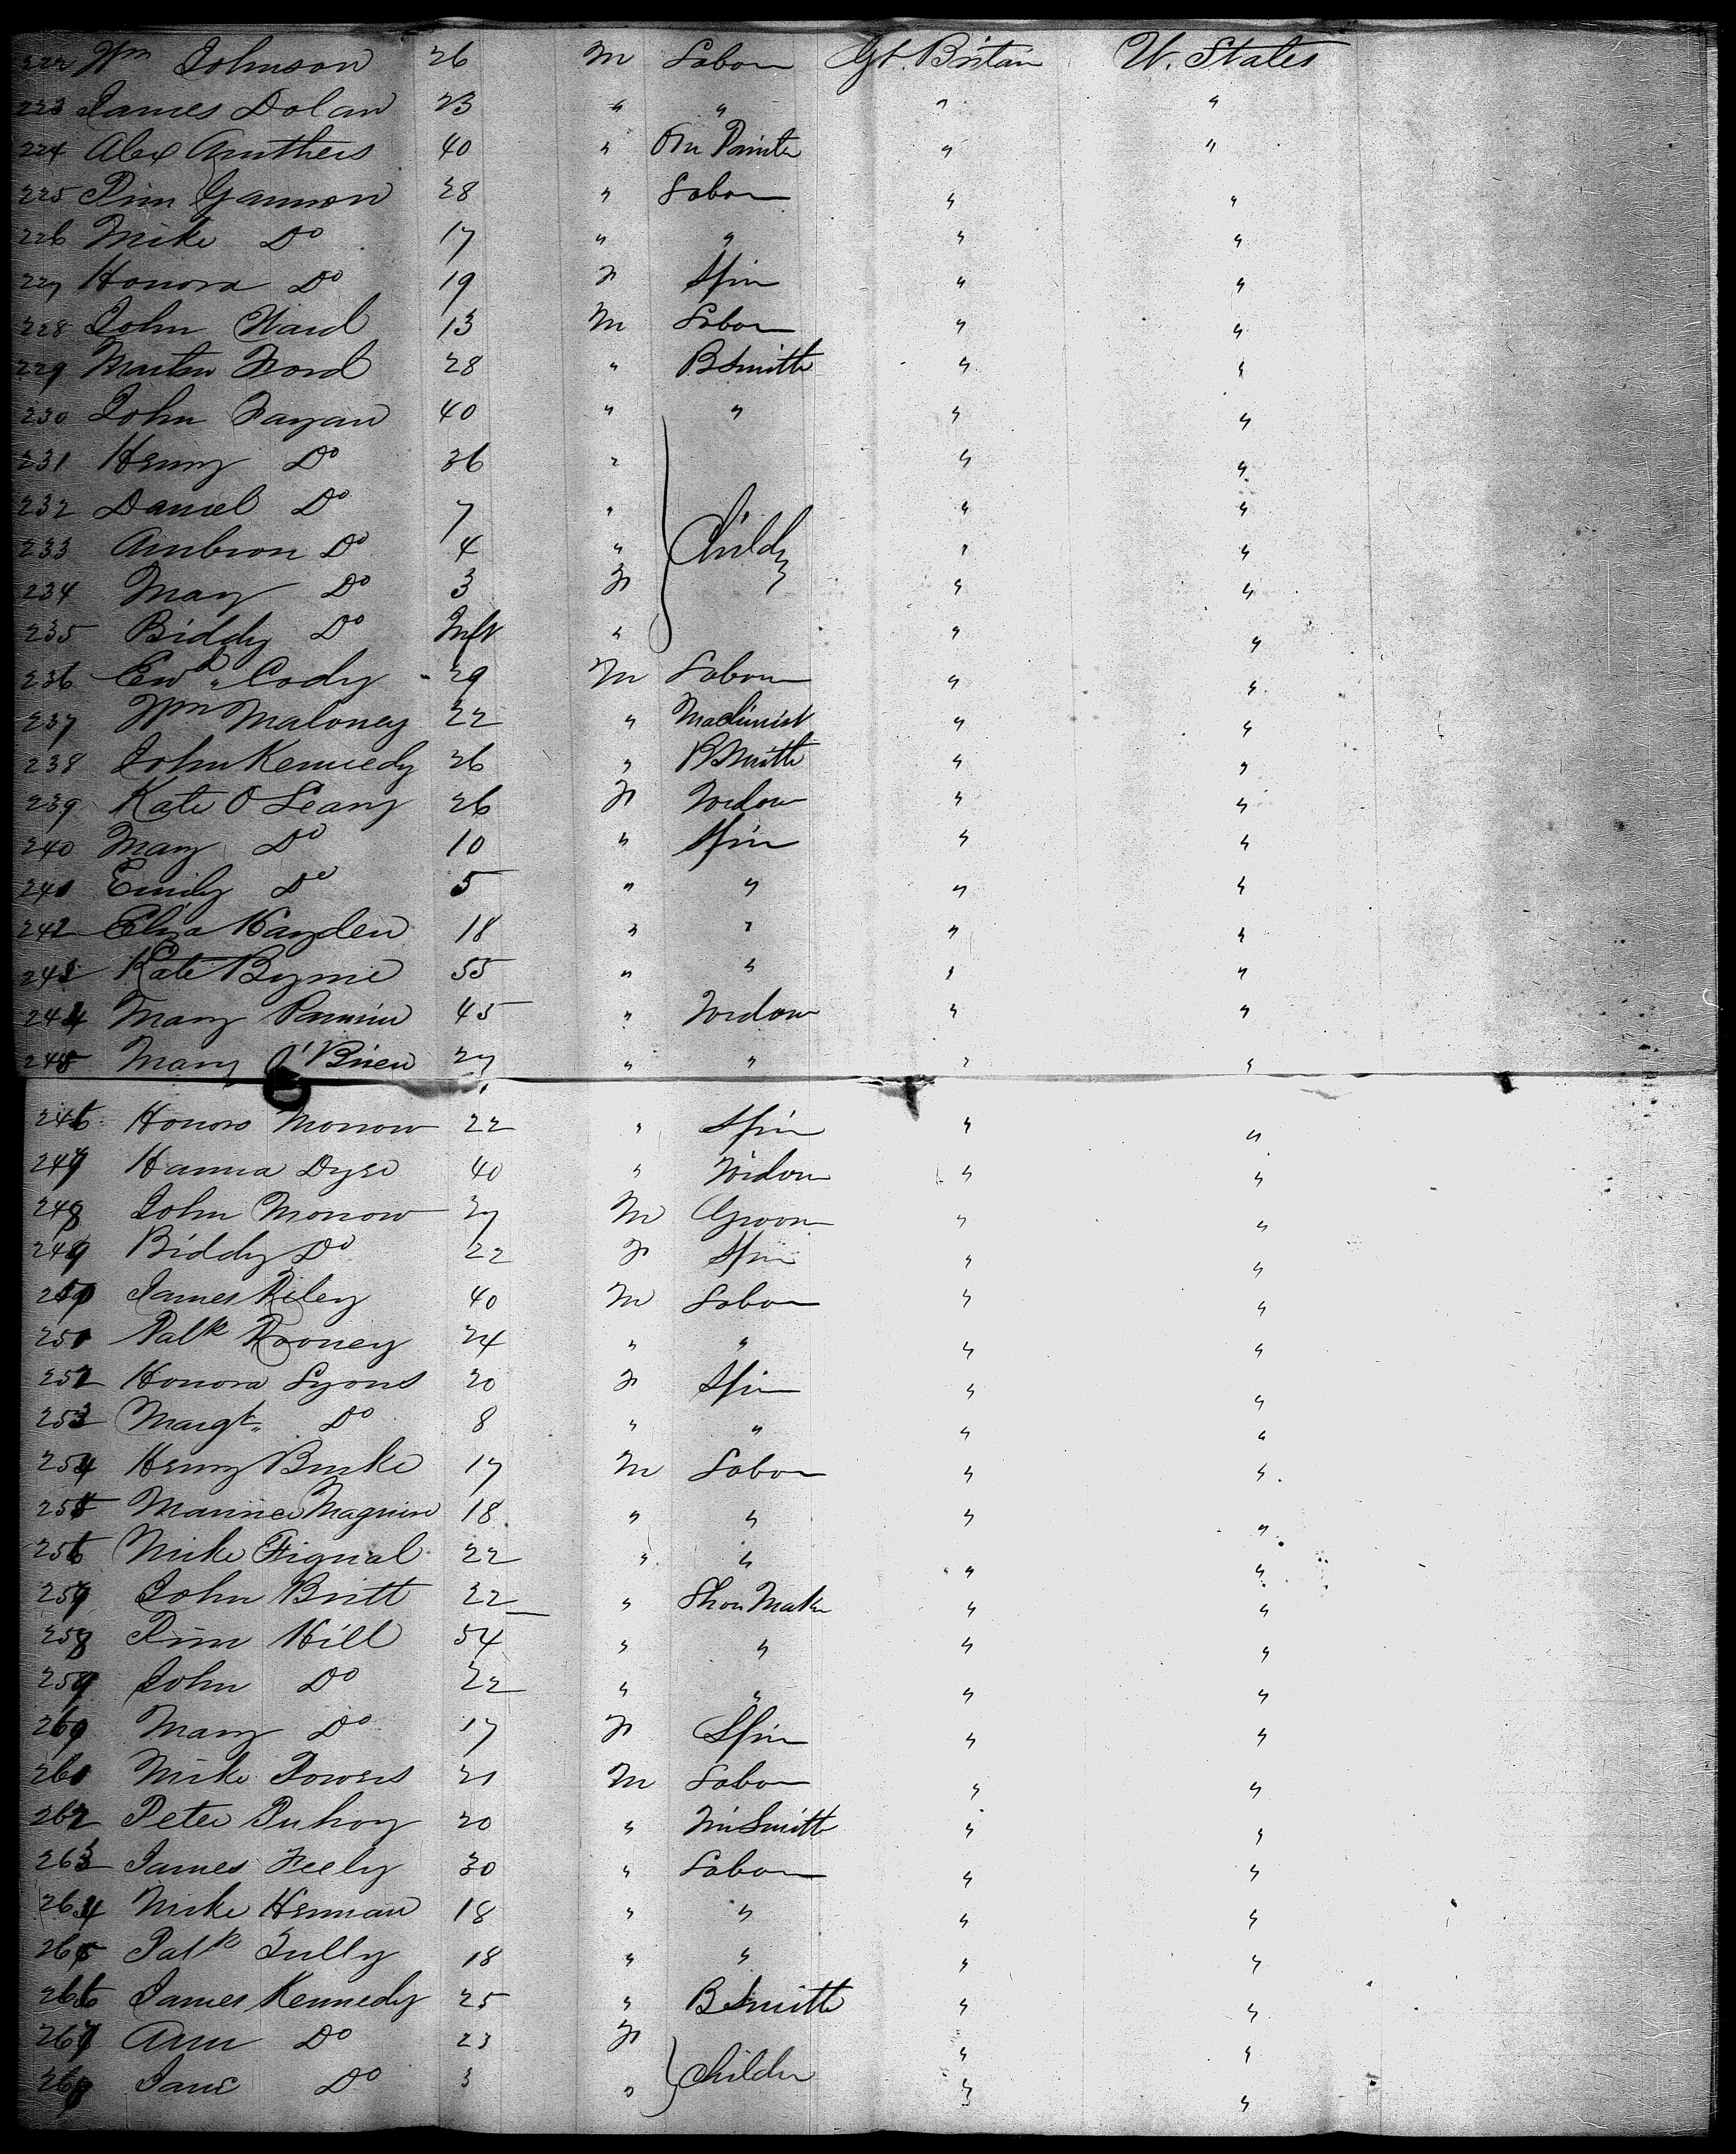 222 Wm Johnson 26 M Labor Gt. Britain U. States
223 James Dolan 23 " " " "
224 Alex Amthers 40 " Painter " "
225 Tim Gannon 28 " Labor " "
226 Mike Do 17 " " " "
227 Honora Do 19 F Spin " "
228 John Ward 13 M Labor " "
229 Martin Ford 28 " BSmith " "
230 John Fagan 40 " " " "
231 Henry Do 36 " " "
232 Daniel Do 7 " " "
233 Ambrou Do 4 " Childn " "
234 Mary Do 3 F " "
235 Biddy Do Inft " " "
236 Ewd Cody 29 M Labor " "
237 Wm Maloney 22 " Machinist " "
238 John Kennedy 26 " BSmith " "
239 Kate O Leary 26 F Widow " "
240 Mary Do 10 " Spin " "
241 Emily Do 5 " " " "
242 Eliza Hayden 18 " " " "
243 Kate Byrne 55 " " " "
244 Mary 45 " Widow " "
245 Mary O'Brien 27 " " " "
246 Honora Morrow 22 " Spin " "
247 Hanna 40 " Widow " "
248 John Morrow 27 M Groom " "
249 Biddy Do 22 F Spin " "
250 James Riley 40 M Labor " "
251 Patk Rooney 24 " " " "
252 Honora Lyons 20 F Spin " "
253 Margt Do 8 " " " "
254 Henry Burke 17 M Labor " "
255 Maurice Maguire 18 " " " "
256 Mike Fignal 22 " " " "
257 John Britt 22 " Shoe Maker " "
258 Tim Hill 54 " " " "
259 John Do 22 " " " "
260 Mary Do 17 F Spin " "
261 Mike Powers 21 M Labor " "
262 Peter 20 " TinSmith " "
263 James Feely 30 " Labor " "
264 Mike Hernan 18 " " " "
265 Patk Tully 18 " " " "
266 James Kennedy 25 " BSmith " "
267 Ann Do 23 F " "
268 Jane Do 3 " Childn " "